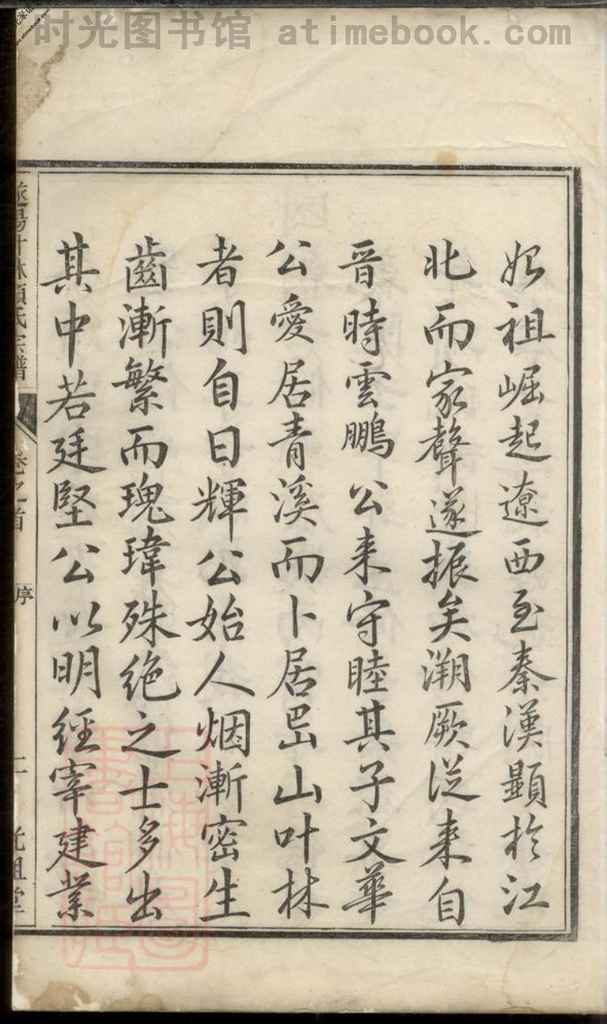 时光图书馆 atimebook.com
始祖崛起遼西至秦漢顯於江
北而家聲遂振矣溯厥從来自
晉時雲鵬公来守睦其子文華
公愛居青溪而卜居岊山叶林
者則自日輝公始人烟漸密生
齒漸繁而瑰瑋殊绝之士多出
其中若廷堅公以明經宰建業
遂陽叶林項氏宗譜 卷之首 序 二 光祖堂